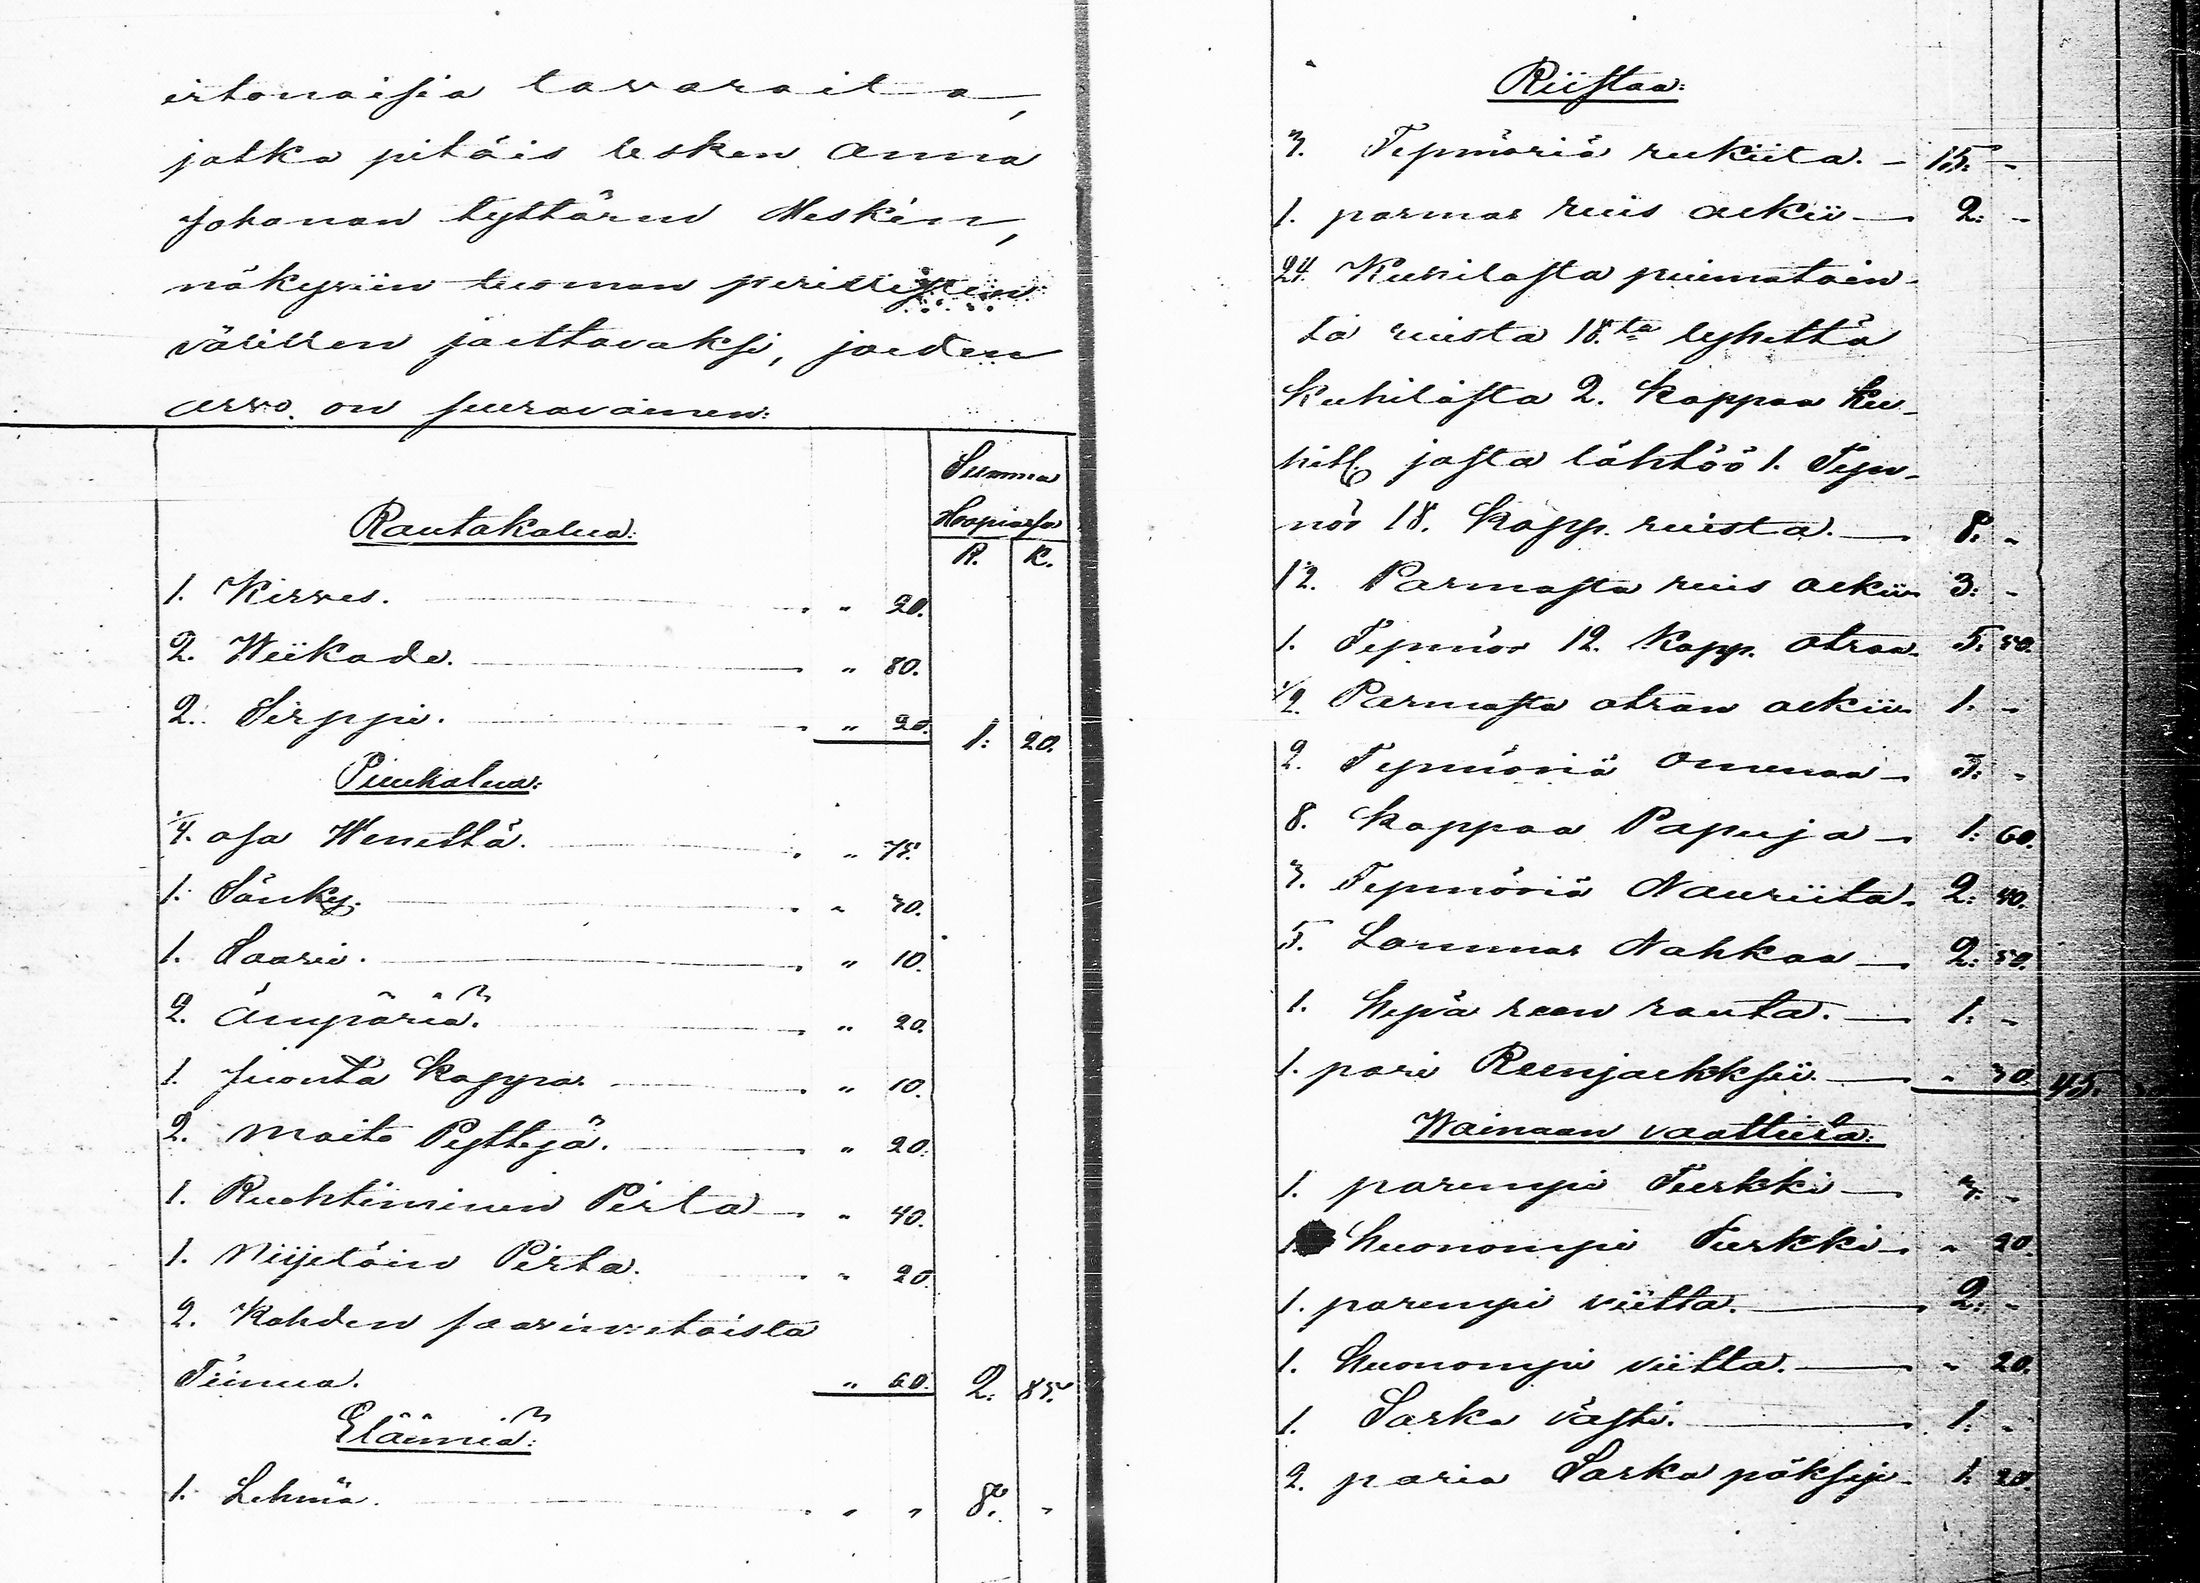 irtonaisia tavaroita,
jotka pitäis lesken Anna
Johanan tyttären Meskin,
näkyviin tuoman perillisten
välillen jaettavaksi, joiden
arvo on seuravainen:
Summa
Hopiassa
R. K.
Rautakalua:
1. Kirves. " 20.
2. Wiikade. " 80.
2. Sirppi. " 20. 1: 20.
Puukalua:
1/4. osa Wenettä. " 75.
1. Sänky. " 30.
1. Saavi. " 10.
2. Ämpäriä. " 20.
1. Juonta Kappa " 10.
2. Maito Pyttyjä. " 20.
1. Ruohtiminen Pirta " 40.
1. Niijetöin Pirta. " 20.
2. Kahden saavinvetoista
Tiinua. " 60. 2: 85.
Eläimiä:
1. Lehmä. " " 8. "
Riistaa:
3. Tynnöriä rukiita. 15. "
1. parmas ruis aekii 2: "
24. Kuhilasta puimatoin-
ta ruista 18.ta lyhettä
Kuhilasta 2. Kappaa Ku-
hill josta lähtöö 1. Tyn-
nör 18. Kapp. ruista. 8. "
12. Parmasta ruis aekii 3: "
1. Tynnör 12. Kapp. otraa 5. 50.
1/2 Parmasta otran aekii 1. "
2. Tynnöriä Omenaa 3: "
8. Kappaa Papuja 1: 60.
3. Tynnöriä Nauriita. 2: 40.
5. Lammas Nahkaa 2: 50.
1. Hyvä reen rauta. 1: "
1. pari Reenjaekksii " 30 45.
Wainaan vaatteita:
1. parempi Turkki 3. "
1. Huonompi Turkki " 20.
1. parempi viitta. 2: "
1. Huonompi viitta. " 20.
1. Sarka västi. 1: "
2. paria Sarka pöksyjä 1: 20.